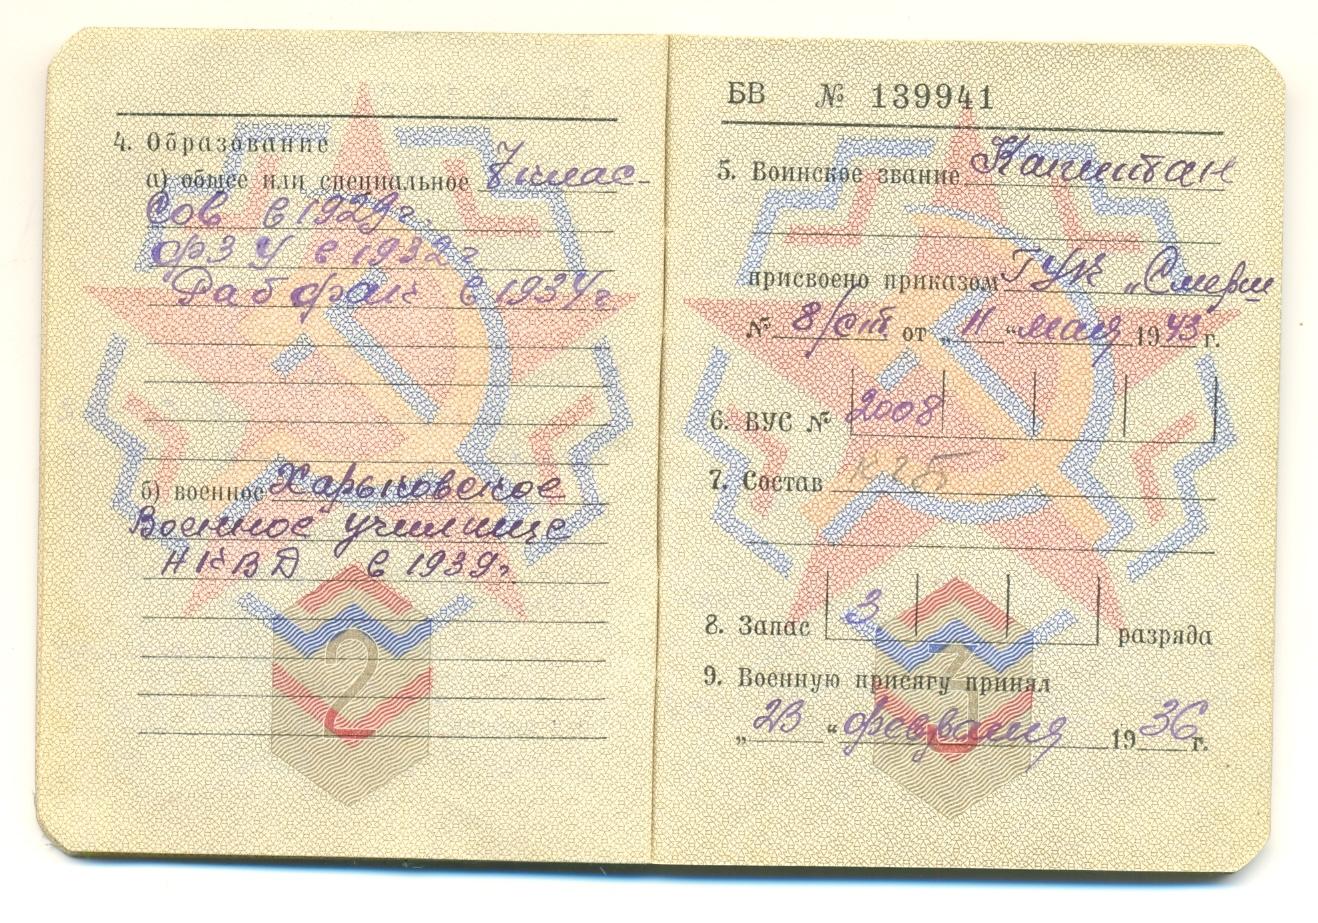 4. Образование
а) общее или специальное 7 клас-
сов в 1929 г.
ФЗУ в 1932 г
Рабфак в 1934 г
б) военное Харьковское
Военное училище
НКВД в 1939 г
2
БВ № 139941
5. Воинское звание Капитан
присвоено приказом ГУК „Смерш
№ 8/ст. от „11 “ мая 1943 г.
6. ВУС № 2008
7. Состав
8. Запас 3. разряда
9. Военную присягу принял
„23 “ февраля 1936 г.
3